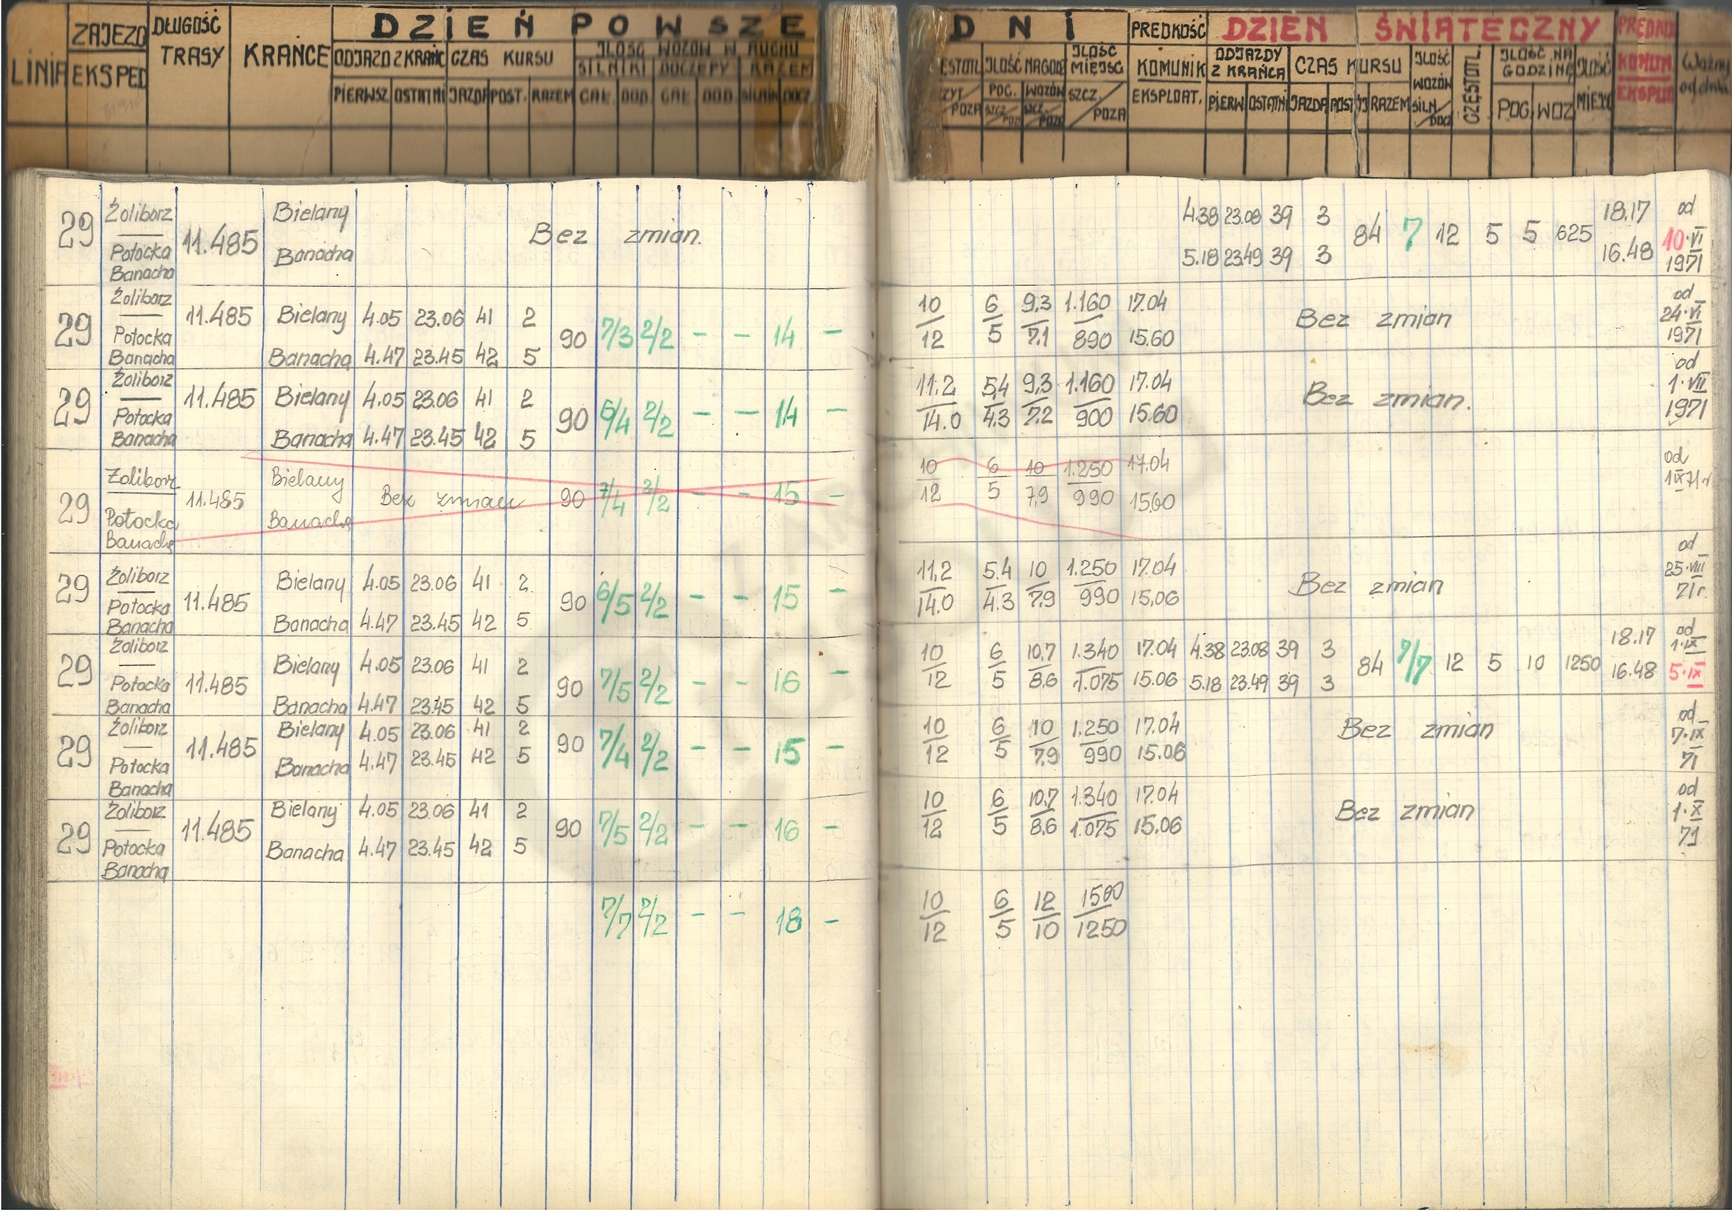 DZIEŃ POWSZEDNI
DZIEN ŚWIATECZNY
LINIA
ZAJEZD
EKSPED
DŁUGOŚĆ
TRASY
KRAŃCE
ODJAZD Z KRAŃC
CZAS KURSU
ILOŚĆ WOZÓW W RUCHU
SILNIKI DOCZEPY RAZEM
PIERWSZ OSTATNI JAZDA POST. RAZEM CAŁ. DOD. CAŁ. DOD.
ILOŚĆ NA GODZ
POG. WOZÓW
ILOŚĆ
MIEJSC
SZCZ POZA
PREDKOŚĆ
KOMUNIK
EKSPLOAT.
ODJAZDY
Z KRAŃCA
CZAS KURSU
PIERW OSTATNI JAZDA POST RAZEM
ILOŚĆ
WOZÓW
SILN
DOCZ
CZĘSTOTL.
ILOŚĆ NA
GODZINĘ
POG. WOZ.
ILOŚĆ
MIEJSC
PRĘDKO
KOMUN
EKSPLO
Ważny
od dnia
29 Żoliborz Potocka Banacha 11.485 Bielany Banacha Bez zmian.
4.38 23.08 39 3
5.18 23.49 39 3
84 7 12 5 5 625 18.17 16.48 od 10.VI 1971
29 Żoliborz Potocka Banacha 11.485
Bielany 4.05 23.06 41 2
Banacha 4.47 23.45 42 5
90 7/3 2/2 - - 14 -
10/12 6/5 9,3/7,1 1.160/890 17.04 15.60 Bez zmian od 24.VI 1971
29 Żoliborz Potocka Banacha 11.485
Bielany 4.05 23.06 41 2
Banacha 4.47 23.45 42 5
90 6/4 2/2 - - 14 -
11.2/14.0 5,4/4,3 9,3/7,2 1.160/900 17.04 15.60 Bez zmian. od 1.VII 1971
29 Żoliborz Potocka Banacha 11.485 Bielany Banacha Bez zmian 90 7/4 2/2 - - 15 -
10/12 6/5 10/7,9 1.250/990 17.04 15.60 od 1 IX 71r
29 Żoliborz Potocka Banacha 11.485
Bielany 4.05 23.06 41 2
Banacha 4.47 23.45 42 5
90 6/5 2/2 - - 15 -
11,2/14.0 5.4/4.3 10/7,9 1.250/990 17.04 15.06 Bez zmian od 25.VIII 71r.
29 Żoliborz Potocka Banacha 11.485
Bielany 4.05 23.06 41 2
Banacha 4.47 23.45 42 5
90 7/5 2/2 - - 16 -
10/12 6/5 10,7/8,6 1.340/1.075 17.04 15.06
4.38 23.08 39 3
5.18 23.49 39 3
84 7/7 12 5 10 1250 18.17 16.48 od 1.IX 5.IX
29 Żoliborz Potocka Banacha 11.485
Bielany 4.05 23.06 41 2
Banacha 4.47 23.45 42 5
90 7/4 2/2 - - 15 -
10/12 6/5 10/7,9 1.250/990 17.04 15.06 Bez zmian od 7.IX 71
29 Żoliborz Potocka Banacha 11.485
Bielany 4.05 23.06 41 2
Banacha 4.47 23.45 42 5
90 7/5 2/2 - - 16 -
10/12 6/5 10,7/8,6 1.340/1.075 17.04 15.06 Bez zmian od 1.X 71
7/7 2/2 - - 18 -
10/12 6/5 12/10 1500/1250